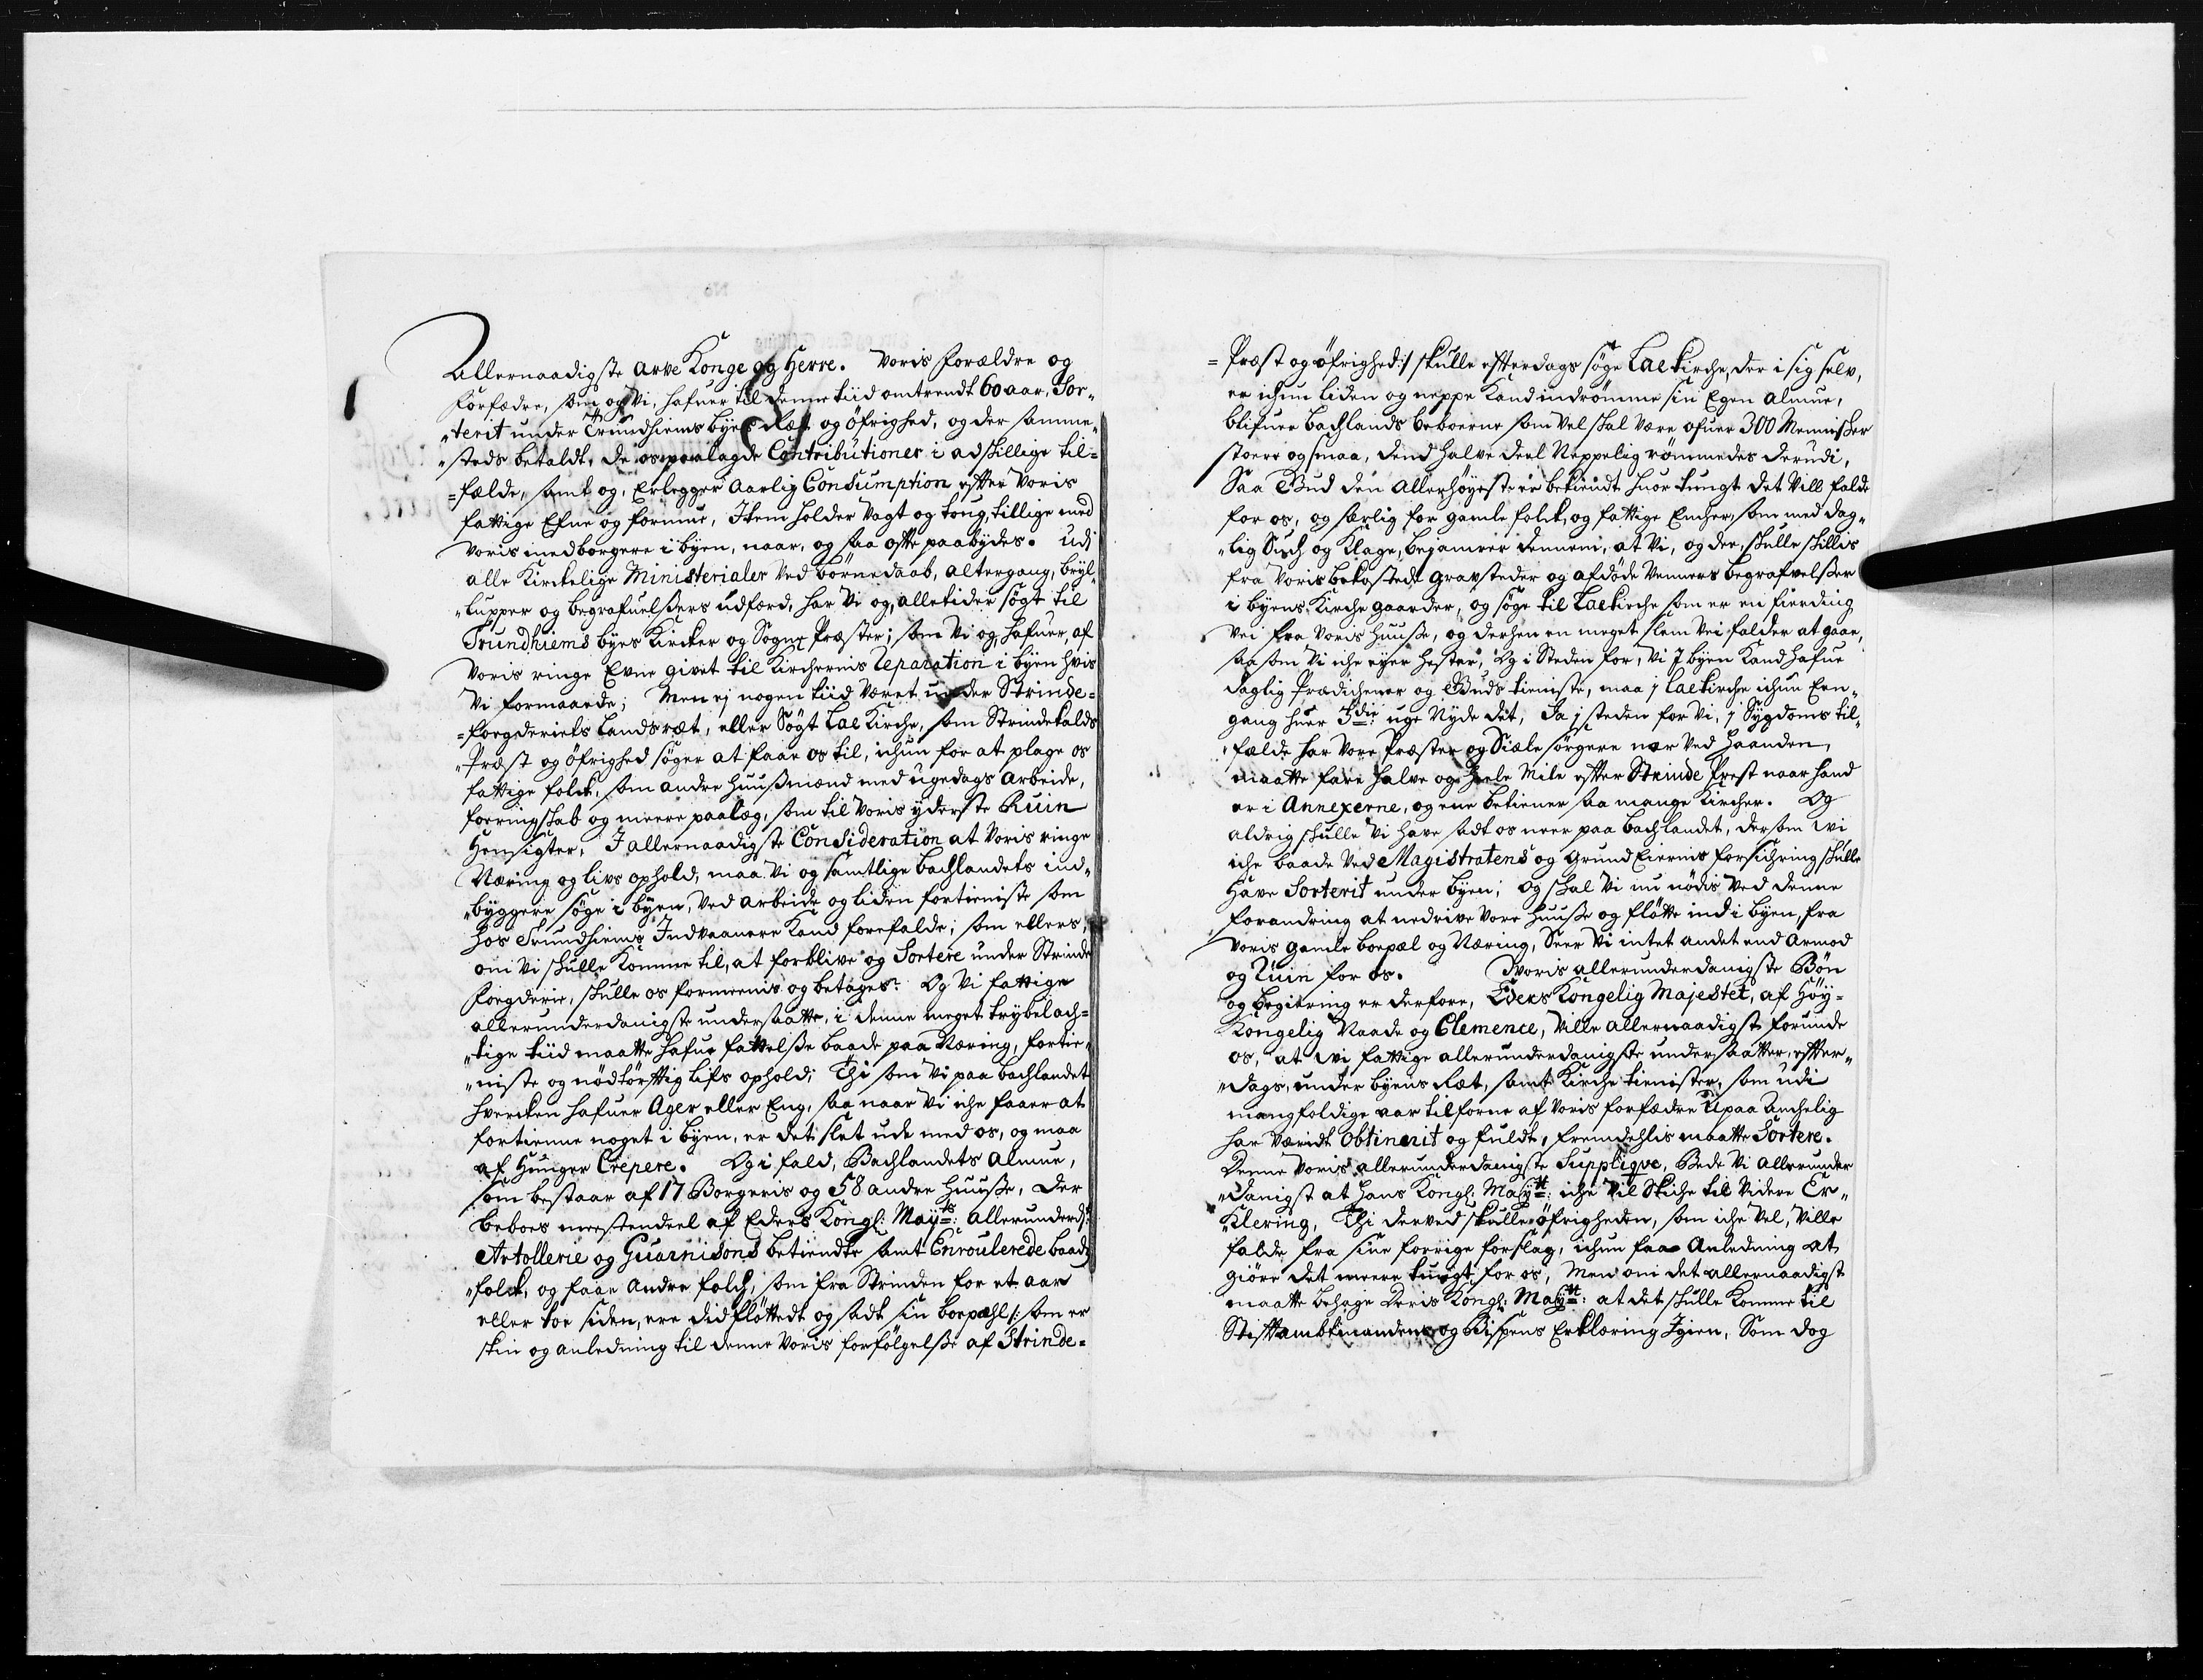 Allernaadigste arve Konge og Herre. Voris forældre og
forfædre, som og Vi, hafuer til denne tiid omtrendt 60 aar, Sor„
„terit under Trundhiems byes Ræt og öfrighed, og der samme„
„steds betaldt, de os paalagde Contributioner i adskillige til=
=fælde, samt og, Erlegger Aarlig Consumption efter Voris
fattige Efne og formue, Item holder Vagt og toug, tillige med
Voris medborgere i byen, naar, og saa ofte paabydes. Udj
alle Kirckelige Ministerialer Ved börnedaab, altergang, bryl„
„lupper og begrafuelßers udførd, har Vi og, alletider søgt til
Trundhiems byes Kircker og Sogne Præster; som Vi og, hafuer, af
Voris ringe Evne givet til Kirchernis Reparation i byen hvis
Vi formaaede; Men ej nogen tiid Været under Strinde=
=foegderiets Landsræt, eller Søgt Lae Kirche, som Strindefalds
„Præst og öfrighed søger at faae os til, ichun for at plage os
fattige folck, som andre Huußmænd med ugedags Arbeide,
foeringskab og meere paalæg, som til Voris yderste Ruin
Hensigter, I allernaadigste Consideration at Voris ringe
Næring og livs ophold, maa Vi og samtlige bachlandets ind„
„byggere søge i byen, Ved arbeide og liden fortieniste som
hos Trundhiems Indvaanere Kand forefalde; som ellers,
om Vi skulle Komme til, at forblive og Sortere under Strinde
foegderie, skulle os formeenis og betages: Og Vi fattige
allerunderdanigste undersaatte, i denne meget trybelach=
„tige tiid maatte hafue fattelße baade paa Næring, fortie„
„niste og nödtörftig lifs ophold; Thi som Vi paa bachlandet
hvercken hafuer Ager eller Eng, saa naar Vi iche faaer at
fortienne noget i byen, er det slet ude med os, og maa
af Hunger Crepere. Og i fald, Bachlandets Almue,
som bestaar af 17 Borgeris og 58 andre Huuße, der
beboes meestendeel af Eders Kongl: Mayts: allerunderd:
Artollerie og Guarnisons betiendte samt Enroulerede baads
„folck, og faae andre folch, som fra Strinden for et aar
eller toe siden, ere did flöttedt og sadt sin boepæhl /: som er
skin og anledning til denne Voris forfölgelße af Strinde=
= Præst og öfrighed :/ skulle efterdags søge Lae Kirche, der i sig selv,
er ichun liden og neppe Kand indrömme sin Egen Almue,
blifuer Bachlands beboerne som Vel skal Være ofuer 300 Mennischer
stoere og smaa, dend halve deel Neppelig römmedes derudi,
Saa Gud den Allerhöyeste er bekiendt huor tungt det Vill falde
for os, og særlig for gamle folck, og fattige Encher, som med dag„
„lig Such og Klage, bejamrer dennem, at Vi, og der, skulle skillis
fra Voris bekostede gravsteder og afdöde Venners begrafvelßer
i byens Kirche gaarder, og søge til Lae Kirche som er en fierding
Vei fra Voris Huuße, og derhen en meget slem Vei falder at gaae,
saa som Vi iche ejer Hester, Og i Steden for, Vi I byen Kand hafue
daglig Prædichener og Guds tieniste, maa i Lae Kirche ichun Een„
gang huer 3die uge Nyde det, Ja i steden for Vi, i Sygdoms til„
„fælde har Vore Præster og Siæle sørgere nær Ved Haanden,
maatte fare halve og heele Mile efter Strinde Prest naar hand
er i Annexerne, og ene betiener saa mange Kircher. Og
aldrig skulle Vi have sadt os neer paa Bachlandet, dersom Wi
iche baade Ved Magistratens og Grund Eiernis forsichring skulle
Have Sorterit under byen; Og skal Vi nu nödis Ved denne
forandring at nedrive Vore Huuße og flötte ind i byen, fra
Voris gamle boepæl og Næring, Seer Vi intet andet end Armod
og Ruin for os. Woris allerunderdanigste Bön
og begiering er derfore, Eders Kongelig Majestet, af Höy=
Kongelig Naade og Clemence, Ville allernaadigst forunde
os, at Wi fattige allerunderdanigste undersaatter, efter„
„dags, under byens Ræt, samt Kirche tienister, som udi
mangfoldige aar tilforne af Voris forfædre Upaa Anchelig
har Væridt Obtinerit og fuldt, fremdehlis maatte Sortere.
Denne Voris allerunderdanigste Suppliqve, Bede Vi Allerunder
„danigst at Hans Kongl: Maytt: iche Vil Skiche til Videre Er„
„Klering, Thi derved skulle öfrigheden, som iche Vel, Ville
falde fra sine forrige forslag, ichun faae Anledning at
giöre det meere tungt for os, Men om det allernaadigst
maatte behage Deris Kongl: Maytt: at det skulle Komme til
Stiftambtmandens og Bispens Erklæring Igien, Som dog